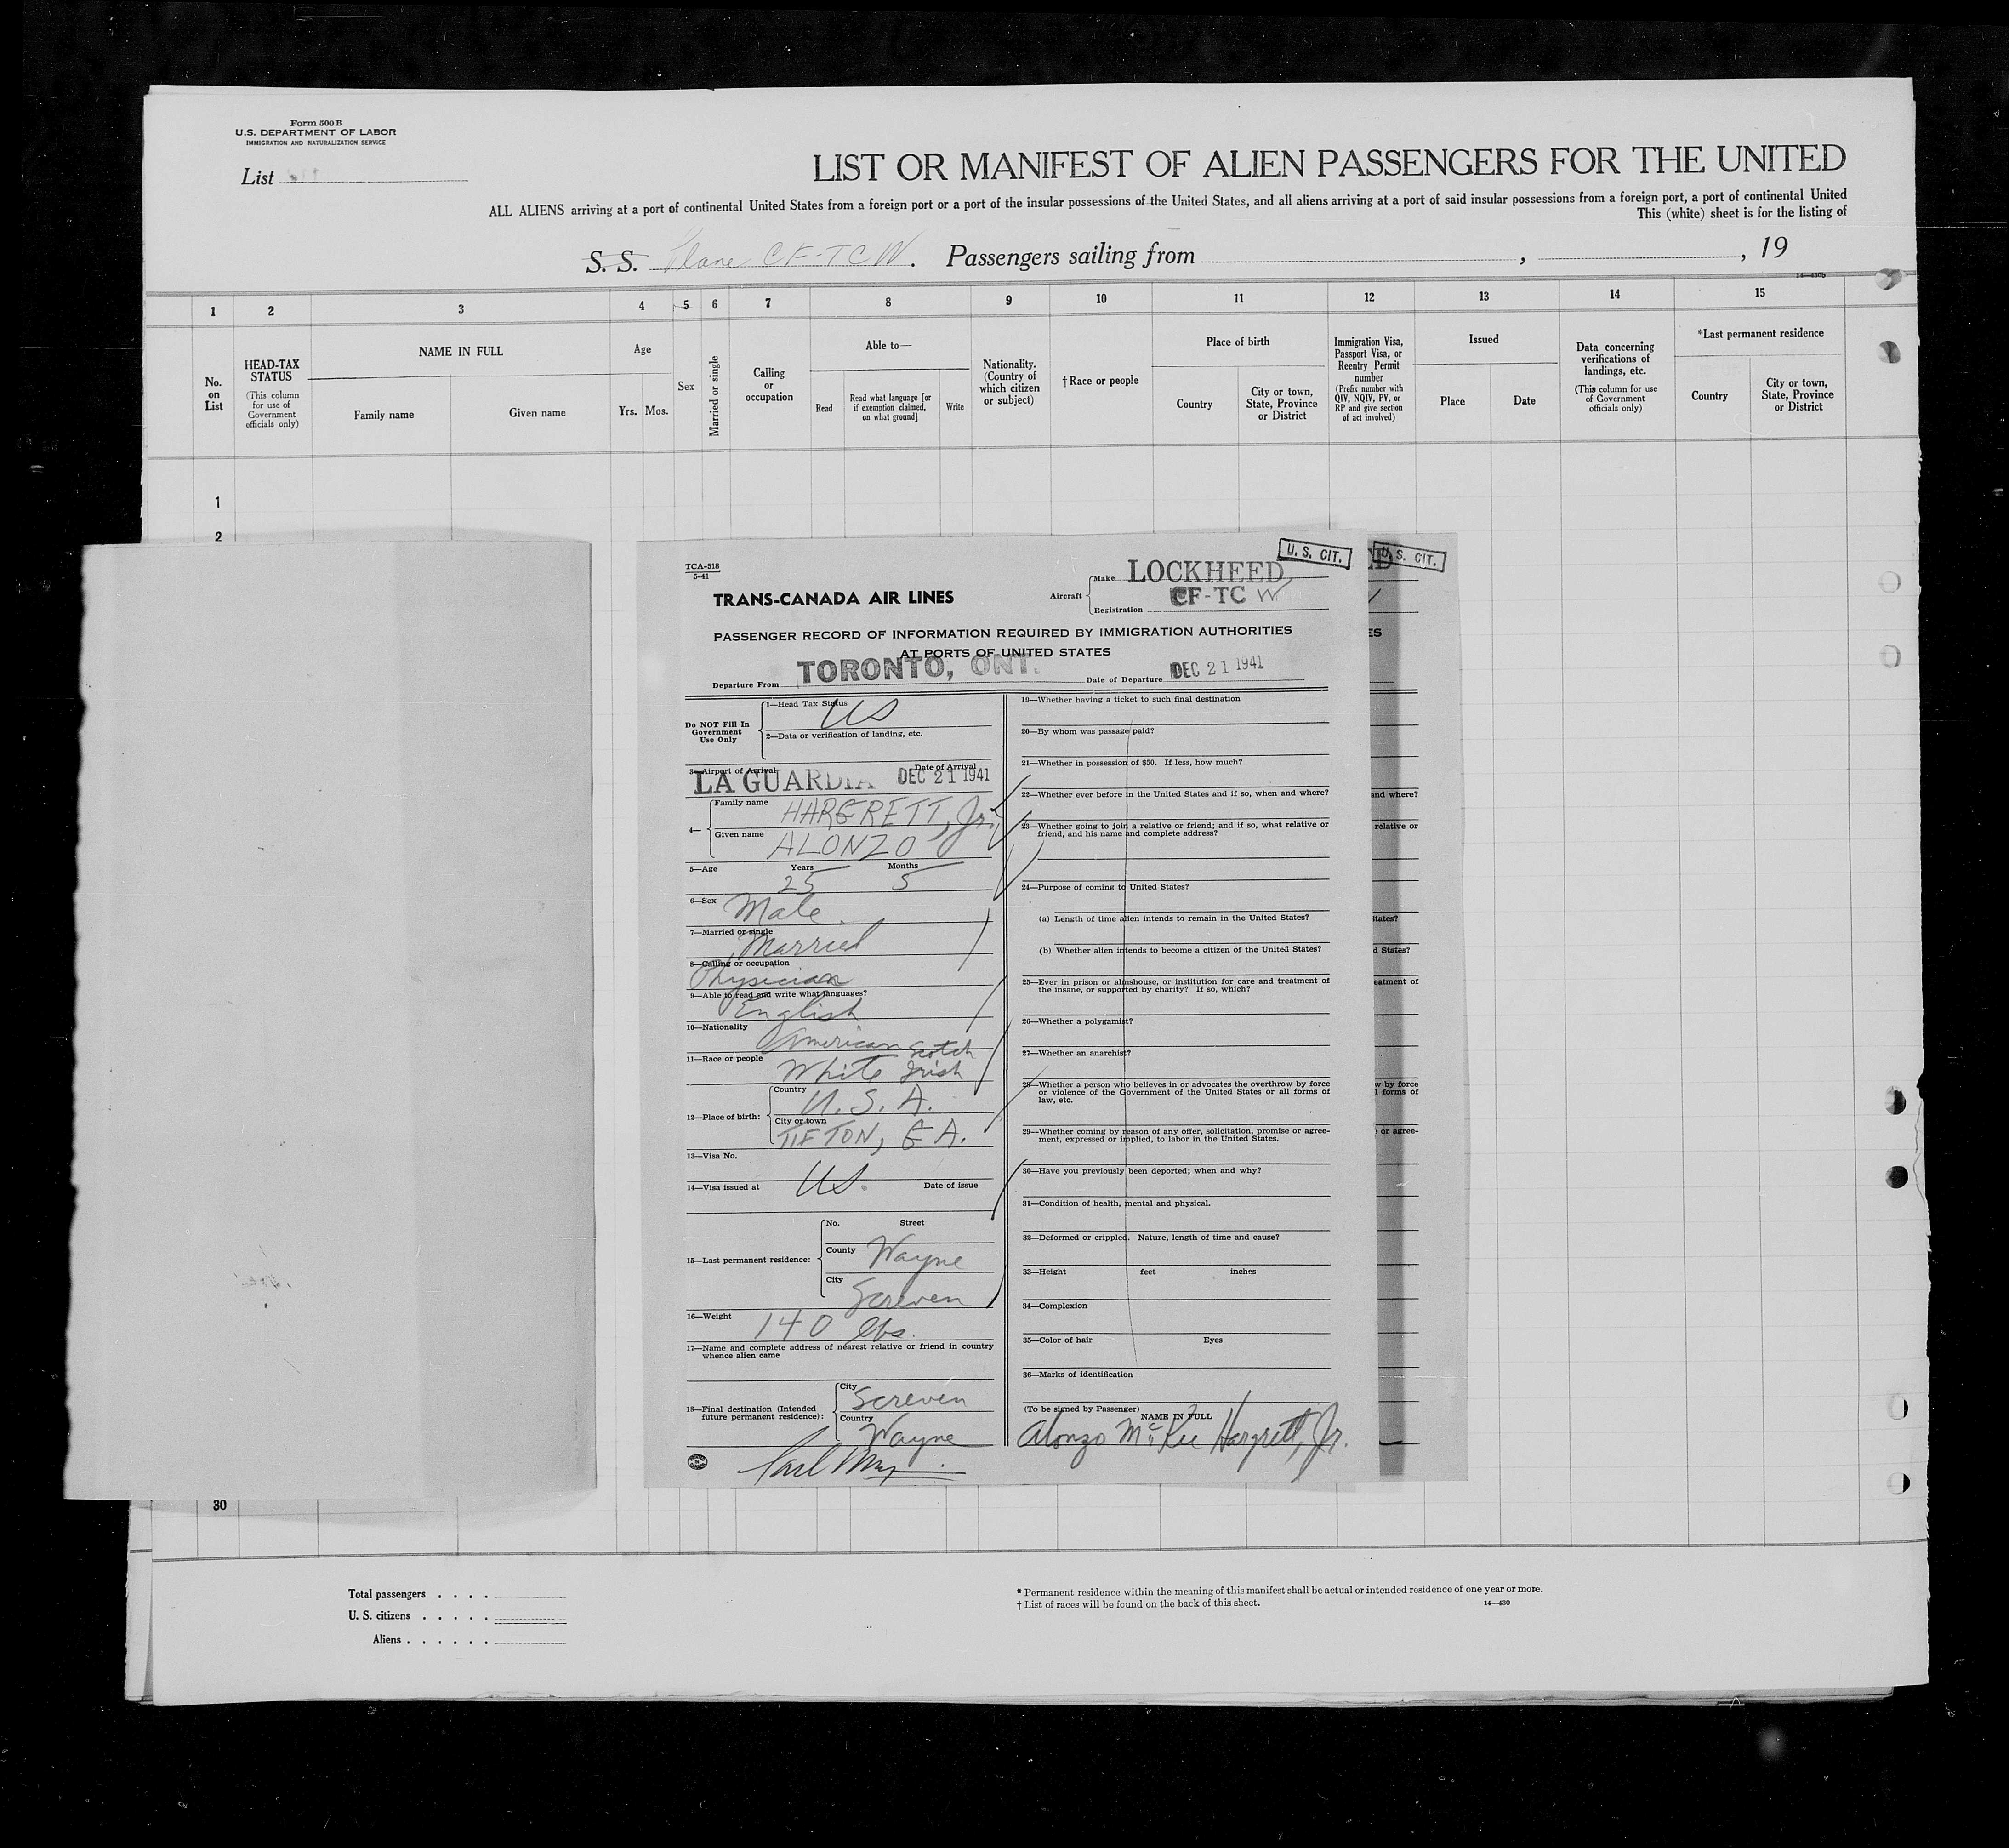 Form 500 B
U.S. DEPARTMENT OF LABOR
IMMIGRATION AND NATURALIZATION SERVICE
List
LIST OR MANIFEST OF ALIEN PASSENGERS FOR THE UNITED
ALL ALIENS arriving at a port of continental United States from a foreign port or a port of the insular possessions of the United States, and all aliens arriving at a port of said insular possessions from a foreign port, a port of continental United
This (white) sheet is for the listing of
S. S. Plane CF-TCW. Passengers sailing from , , 19
14—430b
1 2 3 4 5 6 7 8 9 10 11 12 13 14 15
No. on List
HEAD-TAX STATUS
(This column for use of Government officials only)
NAME IN FULL
Family name Given name
Age
Yrs. Mos.
Sex
Married or single
Calling or occupation
Able to—
Read
Read what language [or if exemption claimed, on what ground]
Write
Nationality. (Country of which citizen or subject)
† Race or people
Place of birth
Country
City or town, State, Province or District
Immigration Visa, Passport Visa, or Reentry Permit number
(Prefix number with QIV, NQIV, PV, or RP and give section of act involved)
Issued
Place Date
Data concerning verifications of landings, etc.
(This column for use of Government officials only)
*Last permanent residence
Country
City or town, State, Province or District
1
2
TCA-518
5-41
TRANS-CANADA AIR LINES
Aircraft
Make LOCKHEED
Registration CF-TC W
U. S. CIT.
U. S. CIT.
PASSENGER RECORD OF INFORMATION REQUIRED BY IMMIGRATION AUTHORITIES
AT PORTS OF UNITED STATES
Departure From TORONTO, ONT. Date of Departure DEC 21 1941
Do NOT Fill In Government Use Only
1—Head Tax Status US
2—Data or verification of landing, etc.
3—Airport of Arrival Date of Arrival
LA GUARDIA DEC 21 1941
4—
Family name HARGRETT, Jr.
Given name ALONZO
5—Age Years 25 Months 5
6—Sex Male
7—Married or single Married
8—Calling or occupation
Physician
9—Able to read and write what languages?
English
10—Nationality American
11—Race or people White Scotch Irish
12—Place of birth:
Country U. S. A.
City or town TIFTON, GA.
13—Visa No.
14—Visa issued at US. Date of issue
15—Last permanent residence:
No. Street
County Wayne
City Screven
16—Weight 140 lbs.
17—Name and complete address of nearest relative or friend in country whence alien came
18—Final destination (Intended future permanent residence):
City Screven
Country Wayne
19—Whether having a ticket to such final destination
20—By whom was passage paid?
21—Whether in possession of $50. If less, how much?
22—Whether ever before in the United States and if so, when and where?
23—Whether going to join a relative or friend; and if so, what relative or
friend, and his name and complete address?
24—Purpose of coming to United States?
(a) Length of time alien intends to remain in the United States?
(b) Whether alien intends to become a citizen of the United States?
25—Ever in prison or almshouse, or institution for care and treatment of
the insane, or supported by charity? If so, which?
26—Whether a polygamist?
27—Whether an anarchist?
28—Whether a person who believes in or advocates the overthrow by force
or violence of the Government of the United States or all forms of
law, etc.
29—Whether coming by reason of any offer, solicitation, promise or agree-
ment, expressed or implied, to labor in the United States.
30—Have you previously been deported; when and why?
31—Condition of health, mental and physical.
32—Deformed or crippled. Nature, length of time and cause?
33—Height feet inches
34—Complexion
35—Color of hair Eyes
36—Marks of identification
(To be signed by Passenger)
NAME IN FULL
Alonzo McKee Hargrett, Jr.
and where?
relative or
States?
d States?
eatment of
w by force
l forms of
or agree-
30
Total passengers . . . .
U. S. citizens . . . . .
Aliens . . . . . .
* Permanent residence within the meaning of this manifest shall be actual or intended residence of one year or more.
† List of races will be found on the back of this sheet.
14—430